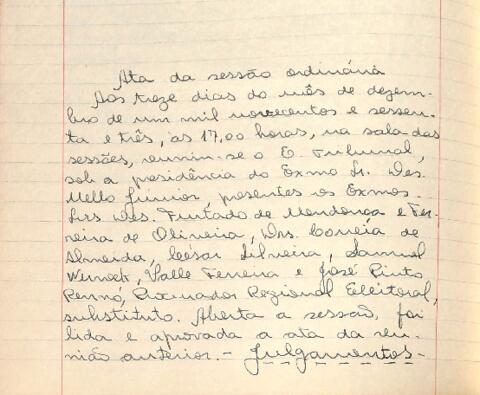 Ata da sessão ordinária
Aos treze dias do mês de dezem-
bro de um mil novecentos e sessen-
ta e três, às 17,00 horas, na sala das
sessões, reuniu-se o E. Tribunal,
sob a presidência do Exmo Sr. Des.
Mello Júnior, presentes os Exmos.
Srs Des. Furtado de Mendonça e Fer-
reira de Oliveira, Drs. Correia de
Almeida, César Silveira, Samuel
Werneck, Valle Ferreira e José Pinto
Renó, Procurador Regional Eleitoral,
substituto. Aberta a sessão, foi
lida e aprovada a ata da reu-
nião anterior. - Julgamentos -